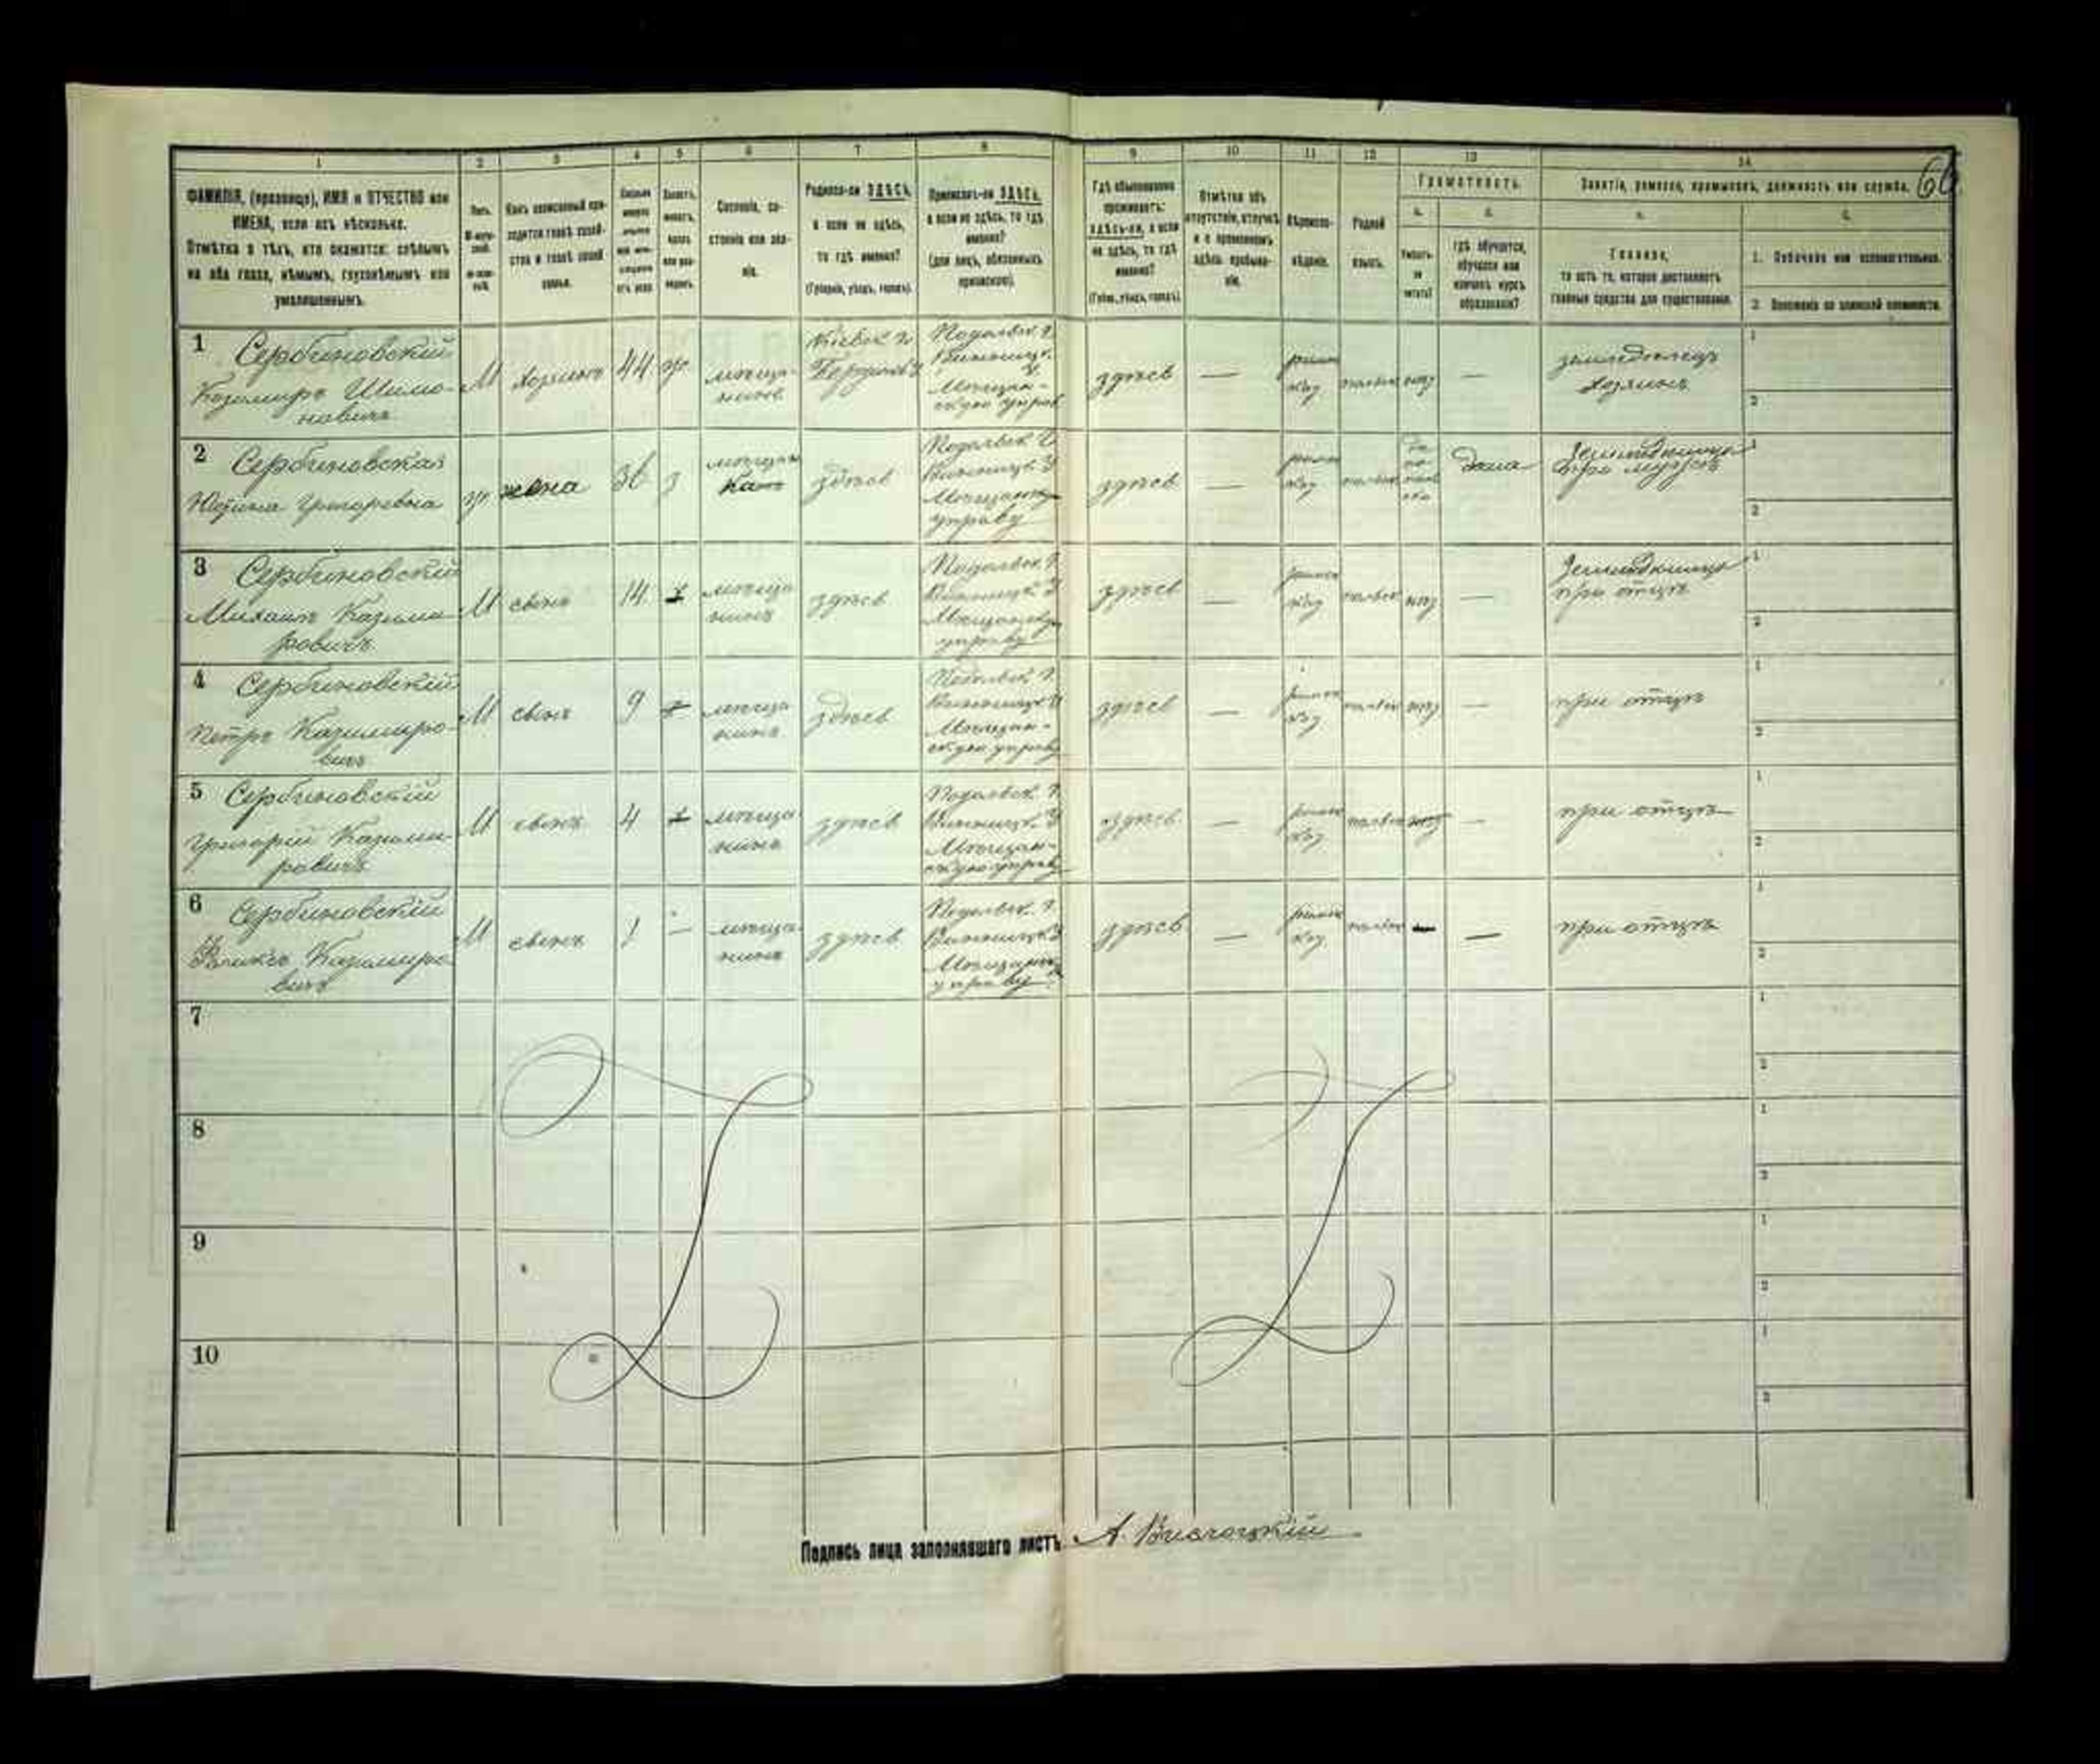 1 2 3 4 5 6 7 8 9 10 11 12 13 14
66
ФАМИЛІЯ, (прозвище), ИМЯ и ОТЧЕСТВО или
ИМЕНА, если ихъ нѣсколько.
Отмѣтка о тѣхъ, кто окажется: слѣпымъ
на оба глаза, нѣмымъ, глухонѣмымъ или
умалишеннымъ.
Полъ.
Какъ записанный при-
ходится главѣ хозяй-
ства и главѣ своей
семьи.
Сословіе, со-
стояніе или зва-
ніе.
Родился-ли ЗДѢСЬ,
а если не здѣсь,
то гдѣ именно?
(Губернія, уѣздъ, городъ).
Приписанъ-ли ЗДѢСЬ,
а если не здѣсь, то гдѣ
именно?
(для лицъ, обязанныхъ
припискою).
Гдѣ обыкновенно
проживаетъ:
здѣсь-ли, а если
не здѣсь, то гдѣ
именно?
(Губ., уѣздъ, городъ).
Отмѣтка объ
отсутствіи, отлучкѣ
и о временномъ
здѣсь пребыва-
ніи.
Вѣроиспо-
вѣданіе.
Родной
языкъ.
Грамотность.
а.
б.
Умѣетъ-
ли
читать?
гдѣ обучается,
обучался или
кончилъ курсъ
образованія?
Занятіе, ремесло, промыселъ, должность или служба.
а.
б.
Главное,
то есть то, которое доставляетъ
главныя средства для существованія.
1. Побочное или вспомогательное.
2. Положеніе по воинской повинности.
1 Сербиновскій
Казимиръ Шимо-
новичъ
М
хозяинъ
44
ж
мѣща-
нинъ
Кіевск г.
Подольск г.
Винницк.
у.
Мѣщан-
скую управ
здѣсь
—
римск
каз
польск
нѣтъ
—
земледѣлецъ
хозяинъ
1
2
2 Сербиновская
Юстина Григоревна
ж
жена
36
з
мѣщан
ка
здѣсь
Подольск г.
Винницк у
Мѣщанску
управу
здѣсь
—
римск
польск
дома
при мужѣ
1
2
3 Сербиновскій
Михаилъ Казими-
ровичъ
М
сынъ
14
мѣща
нинъ
здѣсь
Подольск г.
Винницк у
Мѣщанску
управу
здѣсь
—
римск
польск
нѣтъ
—
при отцѣ
1
2
4 Сербиновскій
Петръ Казимиро-
вичъ
М
сынъ
9
мѣща
нинъ
здѣсь
Подольск г.
Винницк у
Мѣщан-
скую управу
здѣсь
—
римск
польск
нѣтъ
—
при отцѣ
1
2
5 Сербиновскій
Григорій Казими-
ровичъ
М
сынъ
4
мѣща
нинъ
здѣсь
Подольск г.
Винницк. у
Мѣщан-
скую управу
здѣсь
—
римск
польск
—
при отцѣ
1
2
6 Сербиновскій
Феликсъ Казимиро
вичъ
М
сынъ
1
—
мѣща
нинъ
здѣсь
Подольск. г.
Винницк у
управу
здѣсь
—
римск
польск
—
—
при отцѣ
1
2
7
1
2
8
1
2
9
1
2
10
1
2
Подпись лица заполнявшаго листъ